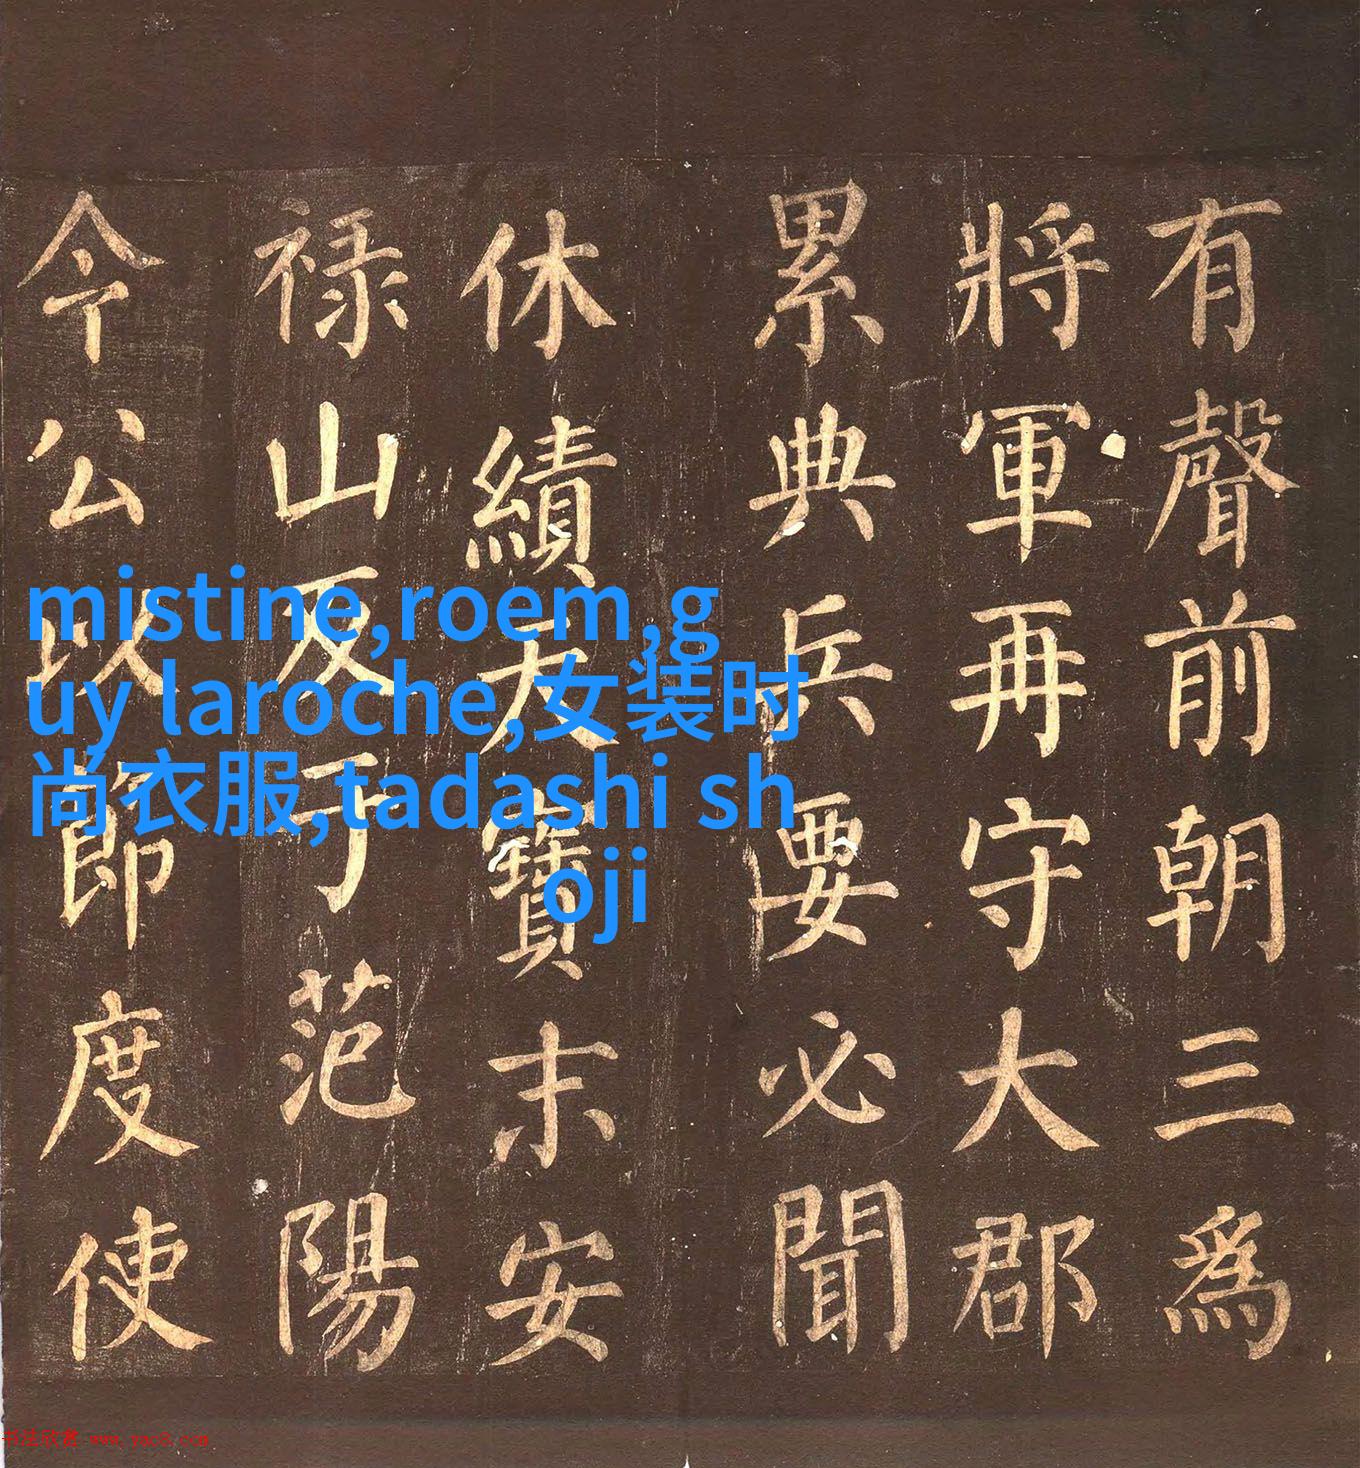 有聲前朝三爲
將軍再守大郡
累典兵要必聞
休績天寶末安
禄山反于范陽
今公以節度使
mistine,roem,g
uy laroche,女装时
尚衣服,tadashi sh
oji
书法欣赏 www.yac8.com